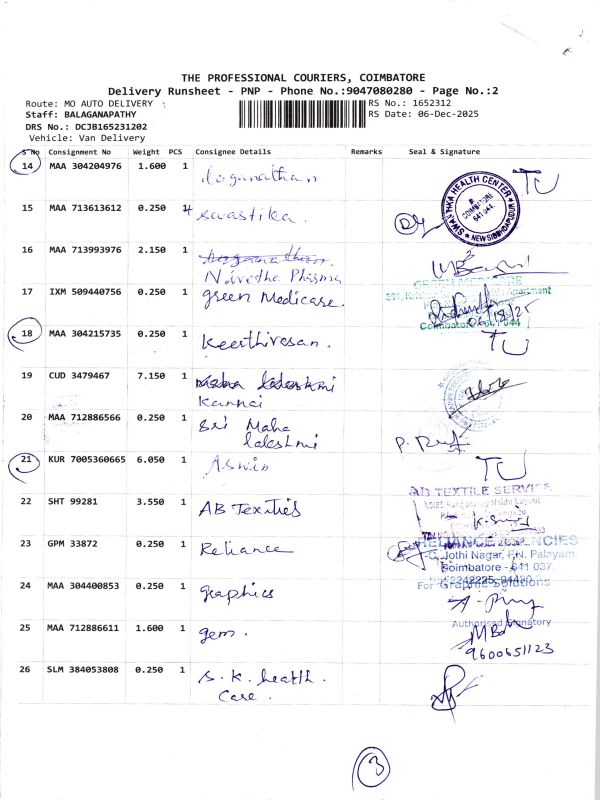 THE PROFESSIONAL COURIERS, COIMBATORE
Delivery Runsheet - PNP - Phone No.:9047080280 - Page No.:2
Route: MO AUTO DELIVERY RS No.: 1652312
Staff: BALAGANAPATHY RS Date: 06-Dec-2025
DRS No.: DCJB165231202
Vehicle: Van Delivery
S No Consignment No Weight PCS Consignee Details Remarks Seal & Signature
14 MAA 304204976 1.600 1 loganathan TU
SWASTHKA HEALTH CENTER
COIMBATORE
641 044.
NEW SIDDHAPUDUR
15 MAA 713613612 0.250 1 swastika.
16 MAA 713993976 2.150 1
Nivetha Pharma
17 IXM 509440756 0.250 1 green Medicare.
06/12/25
18 MAA 304215735 0.250 1 Keerthivasan. TU
19 CUD 3479467 7.150 1 Maha lakshmi
Kannai
20 MAA 712886566 0.250 1 Sri Maha
lakshmi
21 KUR 7005360665 6.050 1 Aswin TU
AB TEXTILE SERVICE
22 SHT 99281 3.550 1 AB Textiles
23 GPM 33872 0.250 1 Reliance
RELIANCE AGENCIES
Jothi Nagar, P.N. Palayam,
Coimbatore - 641 037.
24 MAA 304400853 0.250 1 graphics
For Graphic Solutions
Authorised Signatory
25 MAA 712886611 1.600 1 gem.
9600651123
26 SLM 384053808 0.250 1 S.K. health.
Care.
3